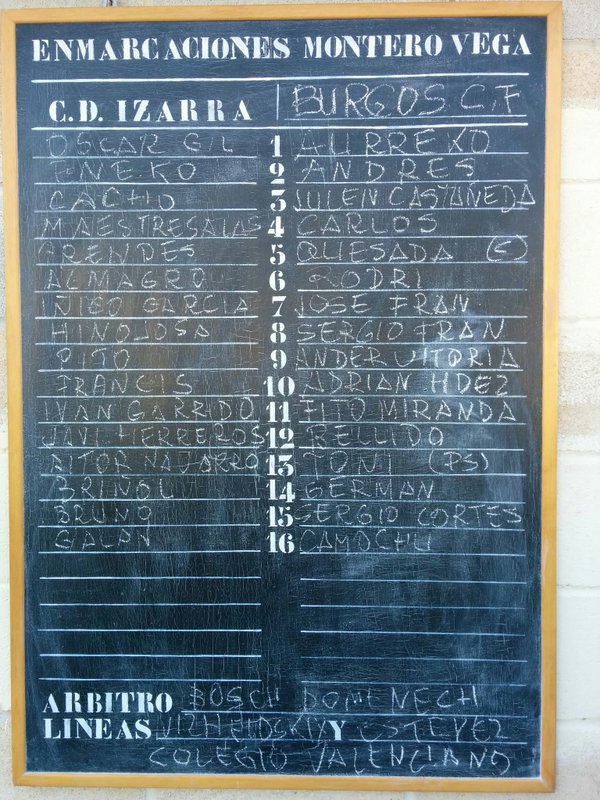 ENMARCACIONES MONTERO VEGA
C.D. IZARRA BURGOS C.F
OSCAR GIL 1 AURREKO
ENEKO 2 ANDRES
CACHO 3 JULEN CASTAÑEDA
MAESTRESALAS 4 CARLOS
5 QUESADA
ALMAGRO 6 RODRI
IÑIGO GARCIA 7 JOSE FRAN
HINOJOSA 8 SERGIO FRAN
PITO 9 ANDER VITORIA
FRANCIS 10 ADRIAN HDEZ
IVAN GARRIDO 11 FITO MIRANDA
JAVI HERREROS 12 BELLIDO
AITOR NAVARRO 13 TONI (PS)
BRIÑOL 14 GERMAN
BRUNO 15 SERGIO CORTES
GALAN 16 CAMOCHU
ARBITRO BOSCH DOMENECH
LINEAS Y ESTEVEZ
COLEGIO VALENCIANO